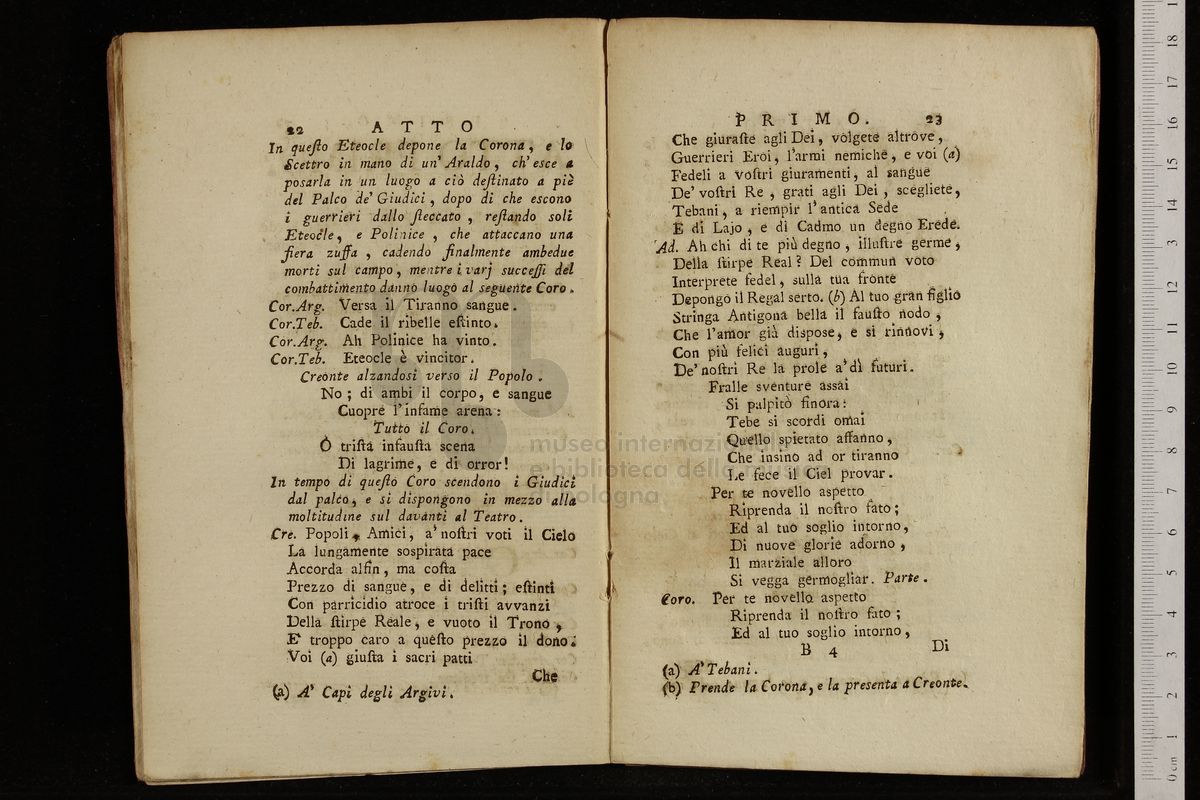 22 A T T O
In queſto Eteocle depone la Corona, e lo
Scettro in mano di un' Araldo, ch' esce a
posarla in un luogo a ciò deſtinato a piè
del Palco de' Giudici, dopo di che escono
i guerrieri dallo ſteccato, reſtando soli
Eteocle, e Polinice, che attaccano una
fiera zuffa, cadendo finalmente ambedue
morti sul campo, mentre i varj succeſſi del
combattimento danno luogo al seguente Coro.
Cor.Arg. Versa il Tiranno sangue.
Cor.Teb. Cade il ribelle eſtinto.
Cor.Arg. Ah Polinice ha vinto.
Cor.Teb. Eteocle è vincitor.
Creonte alzandosi verso il Popolo.
No; di ambi il corpo, e sangue
Cuopre l'infame arena:
Tutto il Coro.
O triſta infauſta scena
Di lagrime, e di orror!
In tempo di queſto Coro scendono i Giudici
dal palco, e si dispongono in mezzo alla
moltitudine sul davanti al Teatro.
Cre. Popoli, Amici, a' noſtri voti il Cielo
La lungamente sospirata pace
Accorda alfin, ma coſta
Prezzo di sangue, e di delitti; eſtinti
Con parricidio atroce i triſti avvanzi
Della ſtirpe Reale, e vuoto il Trono,
E' troppo caro a queſto prezzo il dono.
Voi (a) giuſta i sacri patti
Che
(a) A' Capi degli Argivi.
P R I M O. 23
Che giuraſte agli Dei, volgete altrove,
Guerrieri Eroi, l'armi nemiche, e voi (a)
Fedeli a voſtri giuramenti, al sangue
De' voſtri Re, grati agli Dei, scegliete,
Tebani, a riempir l'antica Sede
E di Lajo, e di Cadmo un degno Erede.
Ad. Ah chi di te più degno, illuſtre germe,
Della ſtirpe Real? Del commun voto
Interprete fedel, sulla tua fronte
Depongo il Regal serto. (b) Al tuo gran figlio
Stringa Antigona bella il fauſto nodo,
Che l'amor già dispose, e si rinnovi,
Con più felici auguri,
De' noſtri Re la prole a' dì futuri.
Fralle sventure assai
Si palpitò finora:
Tebe si scordi omai
Quello spietato affanno,
Che insino ad or tiranno
Le fece il Ciel provar.
Per te novello aspetto
Riprenda il noſtro fato;
Ed al tuo soglio intorno,
Di nuove glorie adorno,
Il marziale alloro
Si vegga germogliar. Parte.
Coro. Per te novello aspetto
Riprenda il noſtro fato;
Ed al tuo soglio intorno,
B 4 Di
(a) A' Tebani.
(b) Prende la Corona, e la presenta a Creonte.
museo internazionale
e biblioteca della musica
di bologna
0 cm 1 2 3 4 5 6 7 8 9 10 11 12 13 14 15 16 17 18